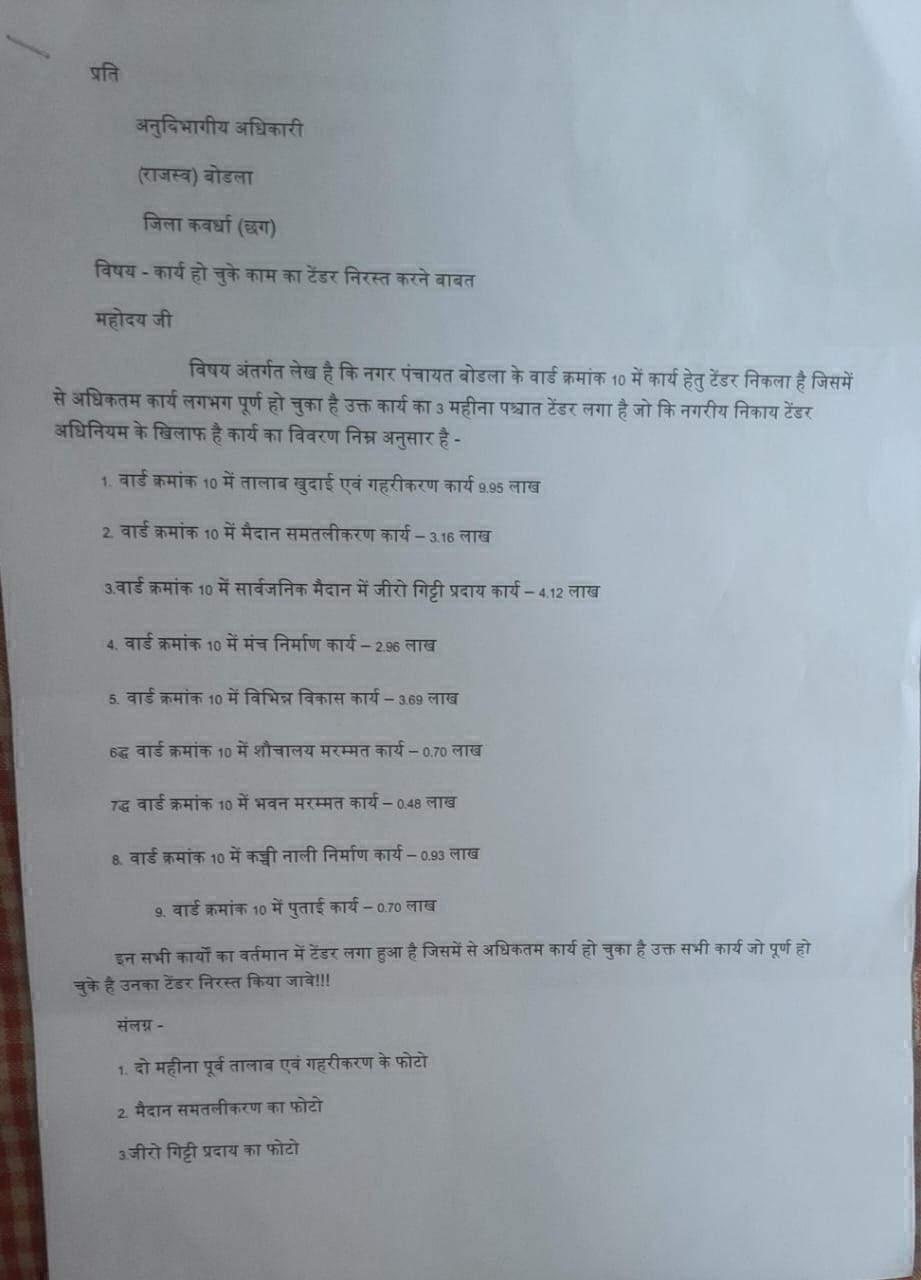 प्रति
अनुविभागीय अधिकारी
(राजस्व) बोडला
जिला कवर्धा (छग)
विषय - कार्य हो चुके काम का टेंडर निरस्त करने बाबत
महोदय जी
विषय अंतर्गत लेख है कि नगर पंचायत बोडला के वार्ड क्रमांक 10 में कार्य हेतु टेंडर निकला है जिसमें
से अधिकतम कार्य लगभग पूर्ण हो चुका है उक्त कार्य का 3 महीना पश्चात टेंडर लगा है जो कि नगरीय निकाय टेंडर
अधिनियम के खिलाफ है कार्य का विवरण निम्न अनुसार है -
1. वार्ड क्रमांक 10 में तालाब खुदाई एवं गहरीकरण कार्य 9.95 लाख
2. वार्ड क्रमांक 10 में मैदान समतलीकरण कार्य – 3.16 लाख
3.वार्ड क्रमांक 10 में सार्वजनिक मैदान में जीरो गिट्टी प्रदाय कार्य – 4.12 लाख
4. वार्ड क्रमांक 10 में मंच निर्माण कार्य – 2.96 लाख
5. वार्ड क्रमांक 10 में विभिन्न विकास कार्य – 3.69 लाख
6द्ध वार्ड क्रमांक 10 में शौचालय मरम्मत कार्य – 0.70 लाख
7द्ध वार्ड क्रमांक 10 में भवन मरम्मत कार्य – 0.48 लाख
8. वार्ड क्रमांक 10 में कच्ची नाली निर्माण कार्य – 0.93 लाख
9. वार्ड क्रमांक 10 में पुताई कार्य – 0.70 लाख
इन सभी कार्यों का वर्तमान में टेंडर लगा हुआ है जिसमें से अधिकतम कार्य हो चुका है उक्त सभी कार्य जो पूर्ण हो
चुके है उनका टेंडर निरस्त किया जावे!!!
संलग्न -
1. दो महीना पूर्व तालाब एवं गहरीकरण के फोटो
2. मैदान समतलीकरण का फोटो
3.जीरो गिट्टी प्रदाय का फोटो